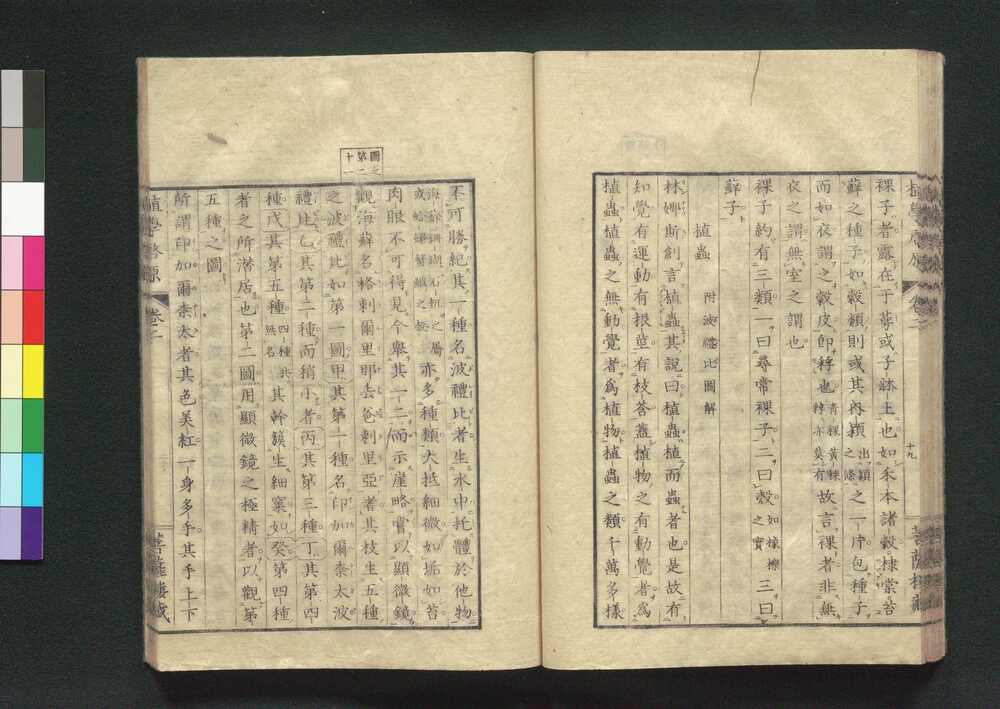 裸子者露在于萼或子牀上也如禾本諸穀棣棠苔
蘚之種子如穀類則或其內穎出穎之際之一片包種子
而如衣謂之穀皮卽稃也青稞黃稞稃亦莫有故言裸者非無
衣之謂無室之謂也
裸子約有三類一曰尋常裸子二曰殼如檪檞之實三曰
蘚子
植蟲 附波禮比圖解
林娜斯創言植蟲其說曰植蟲植而蟲者也是故有
知覺有運動有根莖有枝荅蓋植物之有動覺者爲
植蟲植蟲之無動覺者爲植物植蟲之類千萬多樣
十九
菩薩樓藏
圖之第二十一
不可勝紀其一種名波禮比者生水中托體於他物
海蘇珊瑚石帆之屬或蛤蠣蟹蝦之殼亦多種類大抵細微如垢如苔
肉眼不可得見今舉其一二而示崖略嘗以顯微鏡
觀海蘇名格剌爾里那去爸剌里亞者其枝生五種
之波禮比如第一圖甲其第一種名印加爾柰太波
禮比乙其第二種而稍小者丙其第三種丁其第四
種戊其第五種四種共無名其幹簇生細窠如癸第四種
者之所潛居也第二圖用顯微鏡之極精者以觀第
五種之圖
所謂印加爾柰太者其色美紅一身多手其手上下
植學啓原
卷三
菩薩樓藏